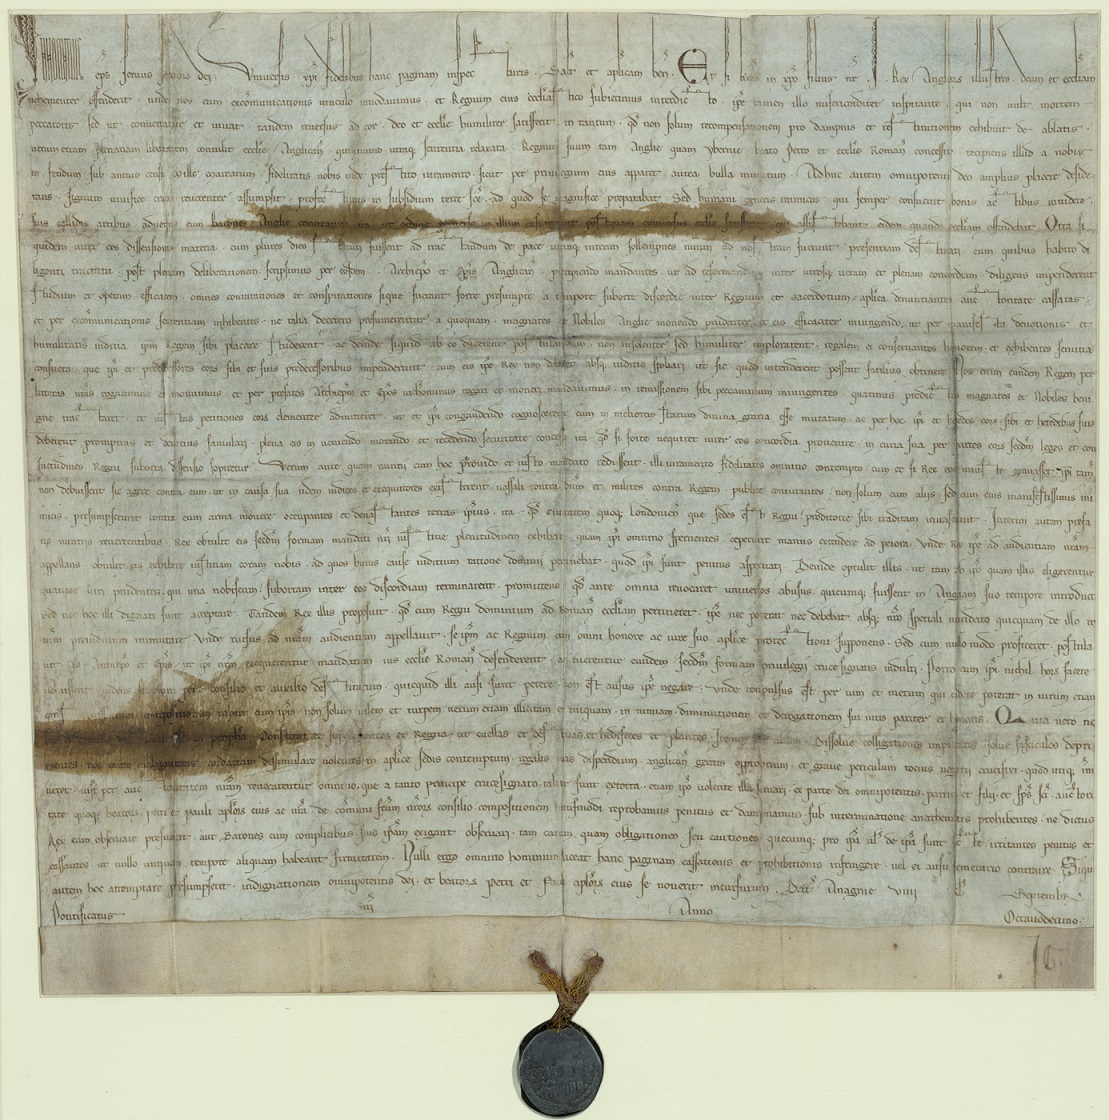 Innocentius eps servus servorum dei. Universis xpi fidelibus hanc paginam inspecturis. Salt et aplicam ben. Et si Karissimus in xpo filius nr J. Rex Anglorum illustris, deum et ecclam
vehementer offenderit. unde nos eum excommunicationis vinculo innodavimus. et Regnum eius ecclastico subiecimus interdicto. ipe tamen illo misericorditer inspirante. qui non vult mortem
peccatoris sed ut convertatur et vivat. tandem reversus ad cor. deo et ecclie humiliter satisfecit in tantum. qd non solum recompensationem pro dampnis et restitutionem exhibuit de ablatis.
verum etiam plenariam libertatem contulit ecclie Anglicane. quinimmo utraque sententia relaxata. Regnum suum tam Anglie quam Ybernie beato Petro et ecclie Romane concessit. recipiens illud a nobis
in feudum sub annuo censu mille marcarum. fidelitatis nobis inde prestito iuramento. sicut per privilegium eius apparet aurea bulla munitum. Adhuc autem omnipotenti deo amplius placere deside
rans. signum vivifice crucis reverenter assumpsit. profecturus in subsidium terre sce. ad quod se magnifice preparabat. Sed humani generis inimicus. qui semper consuevit bonis actibus invidere.
suis callidis artibus adversus eum barones Anglie concitavit. ita ut ordine perverso in illum insurgerent postquam conversus ecclie satisfecit. qui assistebant eidem quando ecclam offendebat. Orta si
quidem inter eos dissensionis materia. cum plures dies statuti fuissent ad tractandum de pace utrimque interim sollempnes nuntii ad nostram fuerunt presentiam destinati. cum quibus habito di
ligenti tractatu. post plenam deliberationem. scripsimus per eosdem. Archiepo et Epis Anglicanis. precipiendo mandantes. ut ad reformandam inter utrosque veram et plenam concordiam. diligens impenderent
studium et operam efficacem. omnes coniurationes et conspirationes si que fuerant forte presumpte a tempore suborte discordie inter Regnum et sacerdotium. aplica denuntiantes auctoritate cassatas.
et per excommunicationis sententiam inhibentes. ne talia decetero presumerentur a quoquam. magnates et Nobiles Anglie monendo prudenter et eis efficaciter iniungendo. ut per manifesta devotionis et
humilitatis inditia ipm Regem sibi placare studerent. ac deinde siquid ab eo ducerent postulandum. non insolenter sed humiliter implorarent. regalem ei conservantes honorem. et exhibentes servitia
consueta que ipi et predecessores eorum sibi et suis predecessoribus impenderunt. cum eis ipe Rex non debeat absque iudicio spoliari ut sic quod intenderent possent facilius obtinere. Nos enim eundem Regem per
litteras nras rogavimus et monuimus et per prefatos Archiepm et Epos nichilominus rogari et moneri mandavimus. in remissionem sibi peccaminum iniungentes. quatinus predictos magnates et Nobiles beni
gne tractaret. et iustas petitiones eorum clementer admitteret. ut et ipi congaudendo cognoscerent eum in meliorem statum divina gratia esse mutatum. ac per hoc ipi et heredes eorum sibi et heredibus suis
deberent promptius et devotius famulari. plena eis in veniendo morando et recedendo securitate concessa ita qd si forte nequiret inter eos concordia provenire. in curia sua per pares eorum secdm leges et con
suetudines Regni suborta dissensio sopiretur. Verum ante quam nuntii cum hoc provido et iusto mandato redissent. illi iuramento fidelitatis omnino contempto. cum et si Rex eos iniuste gravasset. ipi tamen
non debuissent sic agere contra eum. ut in causa sua. iidem iudices et executores existerent. vassali contra dnum. et milites contra Regem. publice coniurantes. non solum cum aliis sed cum eius manifestissimis ini
micis. presumpserunt contra eum arma movere. occupantes et devastantes terras ipsius. ita. qd civitatem quoque Londonien que sedes est Regni. proditorie sibi traditam invaserunt. Interim autem prefa
tis nuntiis revertentibus. Rex obtulit eis secdm formam mandati nri iustitie plenitudinem exhibere. quam ipi omnino spernentes ceperunt manus extendere ad peiora. Unde Rex ipe ad audientiam nram
appellans. obtulit eis exhibere iustitiam coram nobis. ad quos huius cause iudicium ratione dominii pertinebat. quod ipi sunt penitus aspernati. Deinde optulit illis. ut tam ab ipo quam illis eligerentur
quatuor viri prudentes. qui una nobiscum. subortam inter eos discordiam terminarent. promittens. qd ante omnia revocaret universos abusus. quicumque fuissent in Angliam suo tempore introducti
sed nec hoc illi dignati sunt acceptare. Tandem Rex illis proposuit. qd cum Regni dominium ad Romanam ecclesiam pertineret. ipe nec poterat nec debebat absque nro speciali mandato quicquam de illo in
nrm preiudicium immutare. Unde rursus ad nram audientiam appellavit. se ipm ac Regnum cum omni honore ac iure suo aplice protectioni supponens. Sed cum nullo modo proficeret. postula
vit ab Archiepo et Epis. ut ipi nrm exequerentur mandatum. ius ecclie Romane defenderent. ac tuerentur eundem. secdm formam privilegii crucesignatis indulti. Porro cum ipi nichil horum facere
voluissent. videns se omni per consilio et auxilio destitutum. quicquid illi ausi sunt petere non est ausus ipe negare. Unde compulsus est per vim et metum qui cadere poterat in virum etiam
compositionem inivit cum ipis non solum vilem et turpem. verum etiam illicitam et iniquam. in nimiam diminutionem et derogationem sui iuris pariter et honoris. Quia vero nobis
a domino dictum in propheta. Constitui te super gentes et Regna. ut evellas et destruas. et hedifices et plantes. Itemque per alium. Dissolve colligationes impietatis. solve fasciculos depri
mentes. nos tante malignitatis audatiam dissimulare nolentes in aplice sedis contemptum. regalis iuris dispendium. anglicane gentis opprobrium. et grave periculum totius negotii crucifixi. quod utique im
mineret. nisi per auctoritatem nram revocarentur omnia. que a tanto principe crucesignato. taliter sunt extorta. etiam ipo volente illa servari. ex parte dei omnipotentis. patris et filii et sps sci. auctori
tate quoque beatorum petri et pauli aplorum eius ac nra. de communi frum nrorum consilio. compositionem huiusmodi reprobamus penitus et dampnamus. sub interminatione anathematis prohibentes. ne dictus
Rex eam observare presumat. aut Barones cum complicibus suis ipam exigant observari. tam cartam. quam obligationes seu cautiones quecumque pro ipa vel de ipa sunt facte irritantes penitus et
cassantes. ut nullo umquam tempore aliquam habeant firmitatem. Nulli ergo omnino hominum liceat hanc paginam cassationis et prohibitionis infringere. vel ei ausu temerario contraire. Siquis
autem hoc attemptare presumpserit. indignationem omnipotentis dei. et beatorum Petri et Pauli aplorum eius se noverit incursurum. Dat Anagnie viiii kl Septembr
Pontificatus nri Anno Octavodecimo.